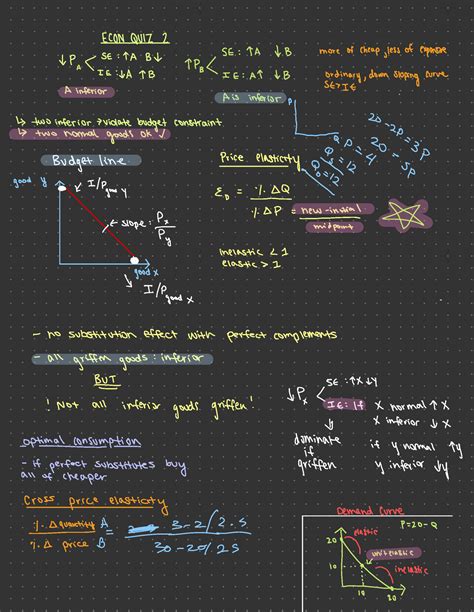 ECON QUIZ 2
↓P_A < SE: ↑A B↓
IE: ↓A ↑B
A inferior
↑P_B < SE: ↑A ↓B
IE: A↑ ↓B
A is inferior
more of cheap, less of expensive
ordinary, down sloping curve
SE>IE
↳ two inferior → violate budget constraint
↳ two normal goods ok ✓
P
Q
20-2P=3P
20-5P
P=4
Q_S=12
Q_D=12
Budget line
good y
I/P good y
← slope: P_x/P_y
good x
I/P good x
Price elasticity
ε_D = %ΔQ
%ΔP = new-initial
midpoint
inelastic < 1
elastic > 1
- no substitution effect with perfect complements
- all griffin goods: inferior
BUT
! Not all inferior goods griffen!
↓P_x < SE: ↑X ↓Y
IE: If X normal ↑X
X inferior ↓X
if Y normal ↑Y
Y inferior ↓Y
dominate
if
griffen
optimal consumption
- if perfect substitutes buy
all of cheaper
Cross price elasticity
%Δ quantity A = 3-2/2.5
%Δ price B 30-20/25
Demand Curve
P=20-Q
20
elastic
unit elastic
10
inelastic
10 20